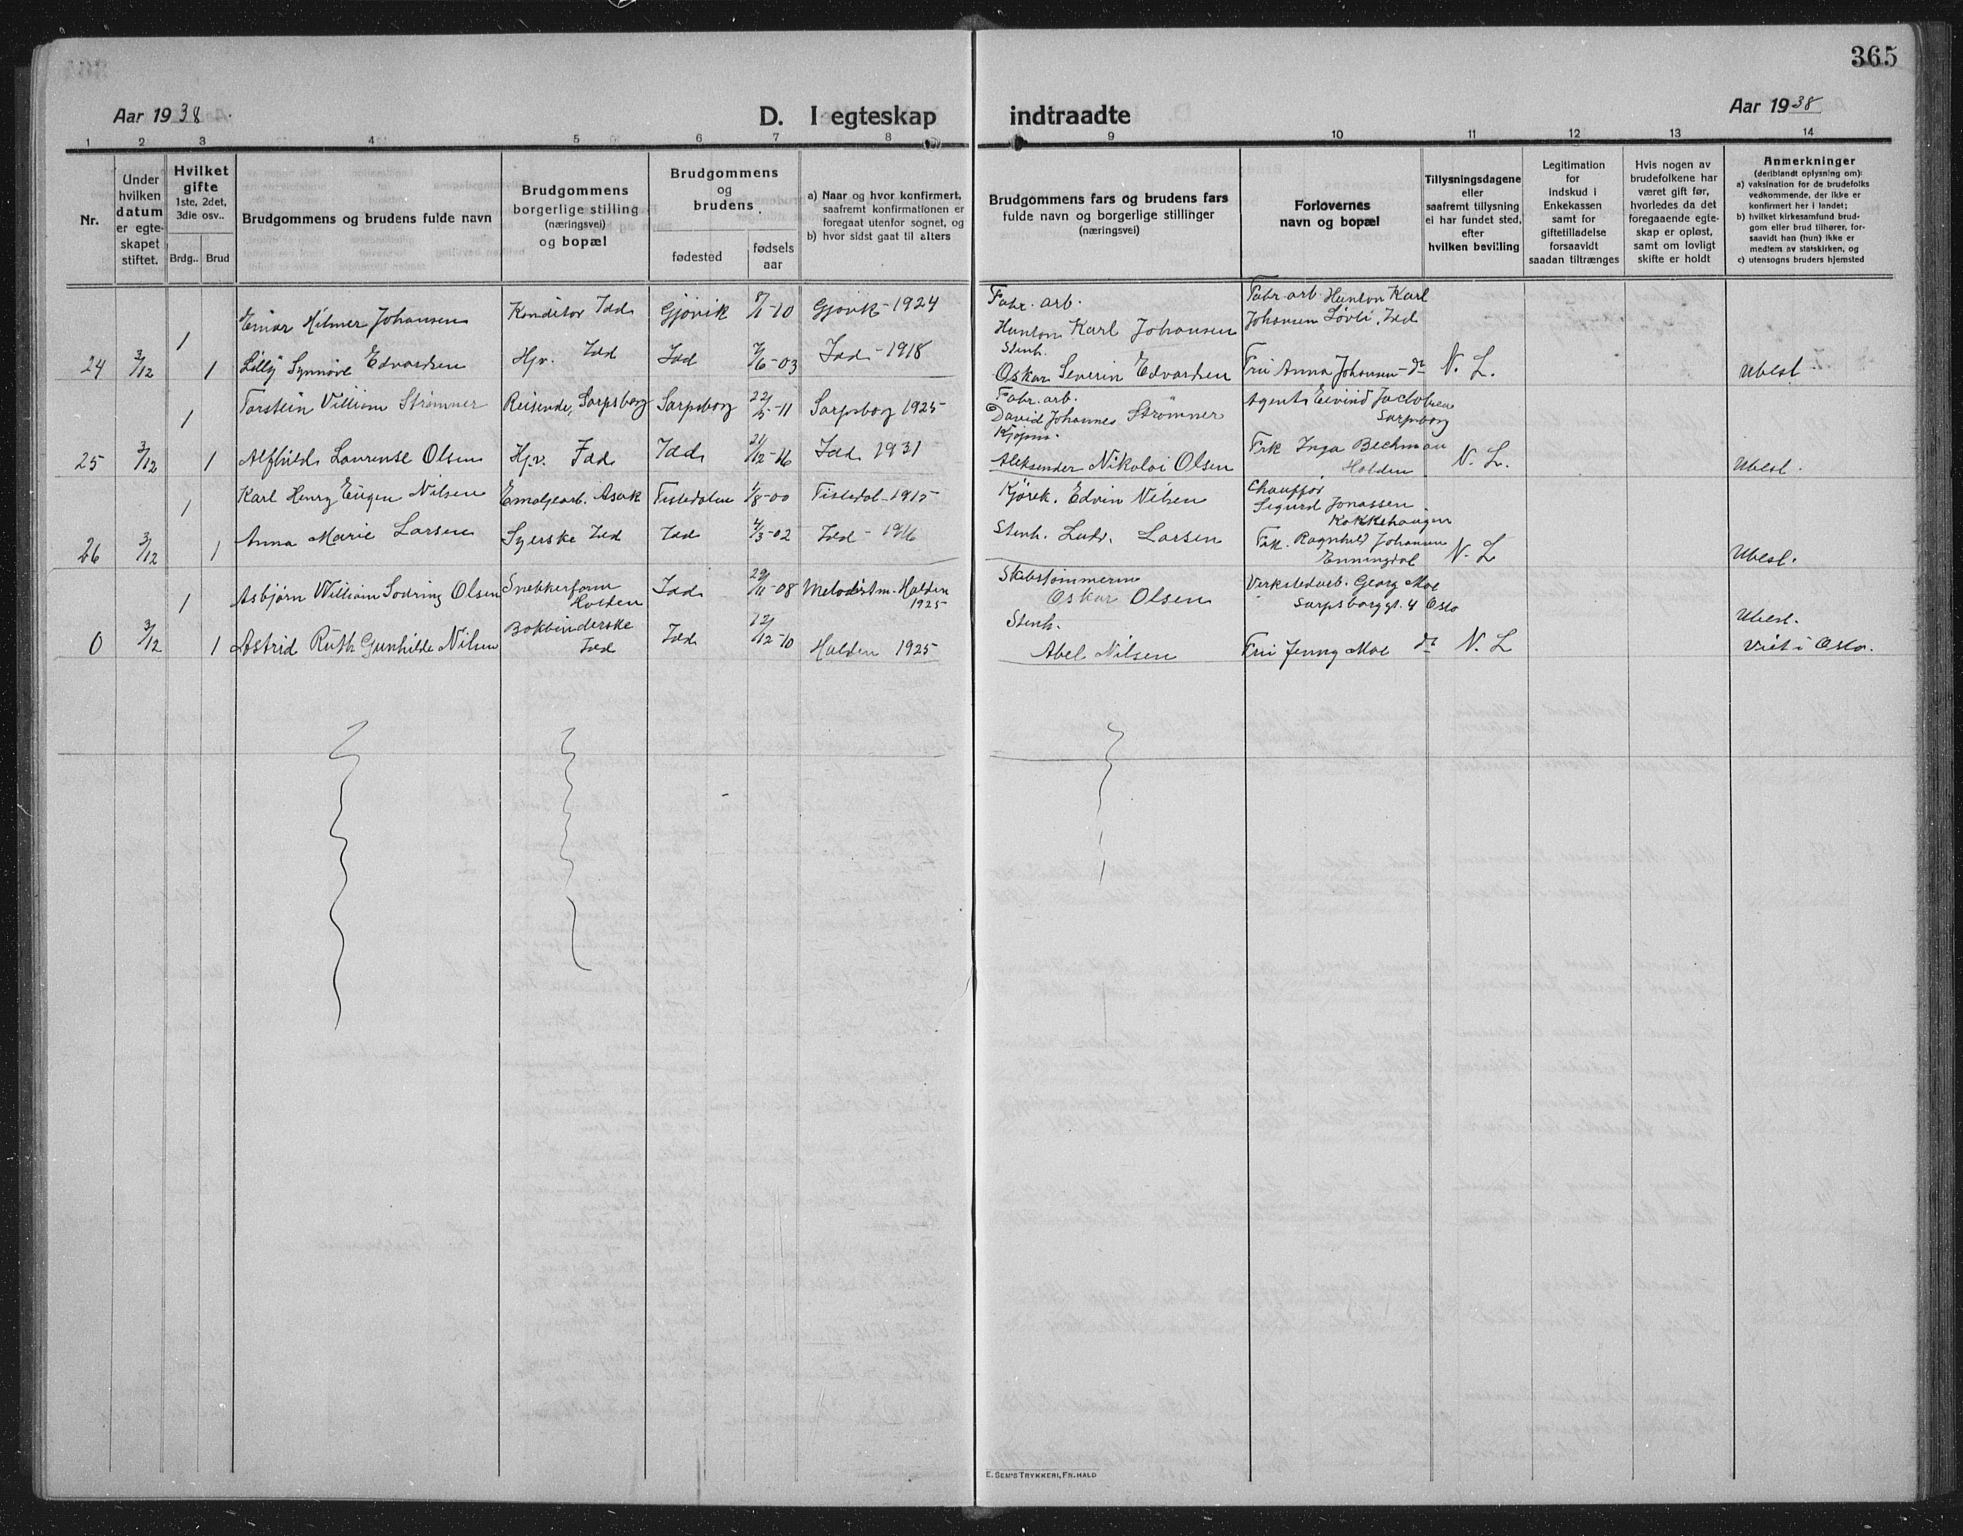 365
Aar 1938
D. I egteskap indtraadte
Aar 1938
1 2 3 4 5 6 7 8 9 10 11 12 13 14
Nr.
Under hvilken datum er egte-skapet stiftet.
Hvilket gifte 1ste, 2det, 3die osv..
Brdg.. Brud
Brudgommens og brudens fulde navn
Brudgommens borgerlige stilling (næringsvei) og bopæl
Brudgommens og brudens
fødested
fødsels aar
a) Naar og hvor konfirmert, saafremt konfirmationen er foregaat utenfor sognet, og
b) hvor sidst gaat til alters
Brudgommens fars og brudens fars fulde navn og borgerlige stillinger (næringsvei)
Forlovernes navn og bopæl
Tillysningsdagene eller saafremt tillysning ei har fundet sted, efter hvilken bevilling
Legitimation for indskud i Enkekassen samt for giftetilladelse forsaavidt saadan tiltrænges
Hvis nogen av brudefolkene har været gift før, hvorledes da det foregaaende egte-skap er opløst, samt om lovligt skifte er holdt
Anmerkninger
(deriblandt oplysning om):
a) vaksination for de brudefolks vedkommende, der ikke er konfirmert her i landet;
b) hvilket kirkesamfund brud-gom eller brud tilhører, for-saavidt han (hun) ikke er medlem av statskirken, og
c) utensogns bruders hjemsted
1 Einar Hilmer Johansen Konditor Idd Gjøvik 8/1-10 Gjøvik - 1924 Fabr. arb. Hunton Karl Johansen Fabr. arb. Hunton Karl Johansen Løvli, Idd
24 3/12 1 Lilly Synnøve Edvardsen Hjv. Idd Idd 7/6-03 Idd - 1918 Stenh. Oskar Severin Edvardsen Fru Anna Johansen - do N. L. Ubesl.
1 Torstein Villiam Strømner Reisende, Sarpsborg Sarpsborg 22/5-11 Sarpsborg 1925 - Fabr. arb. David Johannes Strømner Agent Eivind Jacobsen Sarpsborg
25 3/12 1 Alfhild Laurense Olsen Hjv. Idd Idd 21/12-16 Idd 1931 Kjøpm. Aleksander Nikolai Olsen Frk Inga Beckman Halden N. L. Ubesl.
1 Karl Henry Eugen Nilsen Emaljearb. Asak Tistedalen 1/8-00 Tistedal - 1915 - Kjørek. Edvin Nilsen Chauffør Sigurd Jonassen Kokkehaugen
26 3/12 1 Anna Marie Larsen Syerske Idd Idd 4/3-02 Idd - 1916 Stenh. Ludv. Larsen Frk. Ragnhild Johansen Enningdal N. L. Ubesl.
1 Asbjørn William Sødring Olsen Snekkerform Halden Idd 29/11-08 Metodistm. - Halden 1925 Skibstømmerm Oskar Olsen Verkstedarb. Georg Moe Sarpsborggt. 4 Oslo
0 3/12 1 Astrid Ruth Gunhilde Nilsen Bokbinderske Idd Idd 12/12-10 Halden 1925 - Stenh. Abel Nilsen Fru Jenny Moe do N. L. Ubesl. Viet i Oslo.
E. SEM'S TRYKKERI, FR.HALD